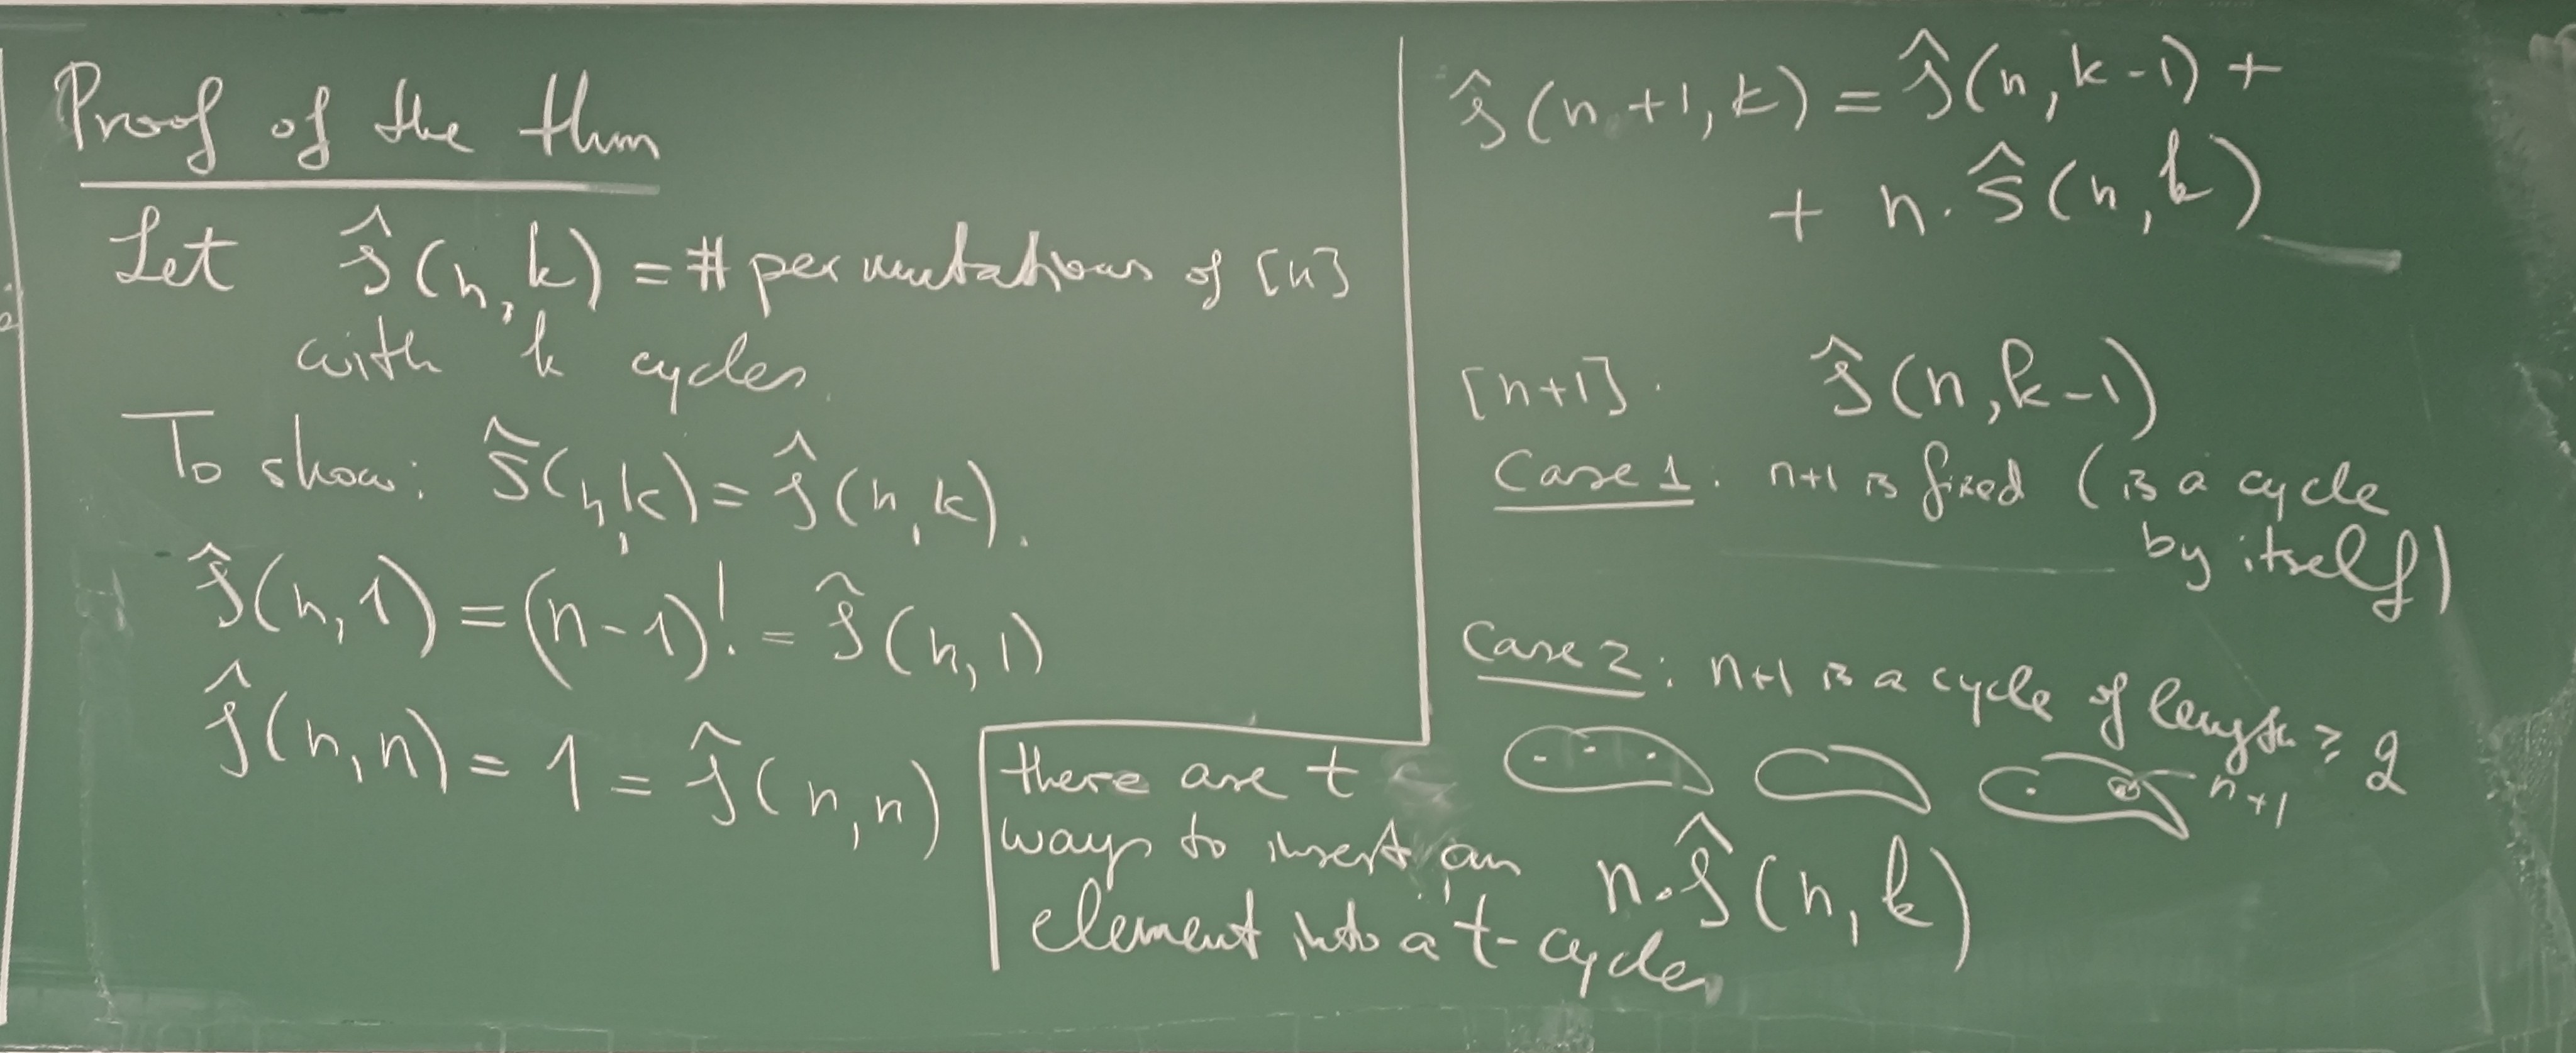 Proof of the thm
Let ŝ(n,k) = # permutations of [n]
with k cycles.
To show: s̃(n,k) = ŝ(n,k).
ŝ(n,1) = (n-1)! = ŝ(n,1)
ŝ(n,n) = 1 = ŝ(n,n)
there are t
ways to insert an
element into a t-cycle
ŝ(n+1,k) = ŝ(n,k-1) +
+ n·ŝ(n,k)
[n+1]. ŝ(n,k-1)
Case 1: n+1 is fixed (is a cycle
by itself)
Case 2: n+1 is a cycle of length ≥ 2
n+1
n·ŝ(n,k)